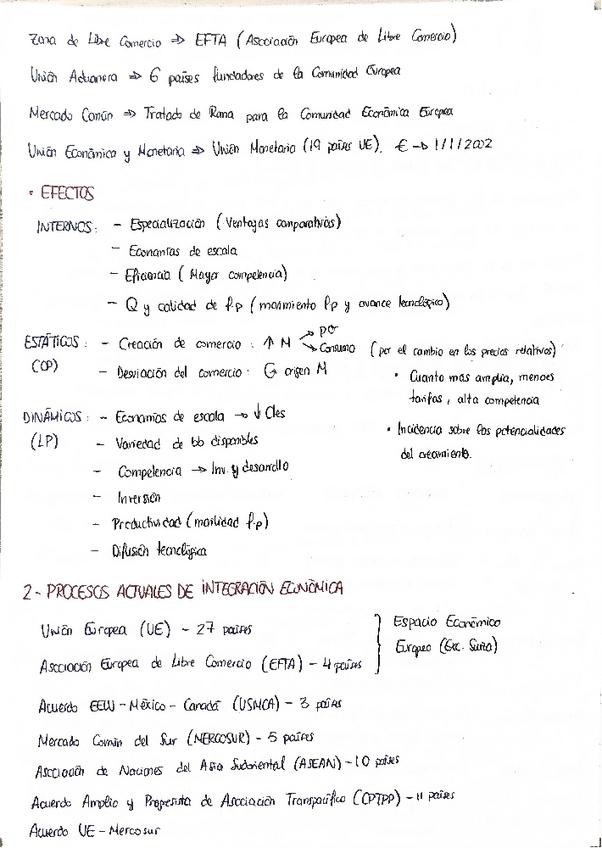 Zona de Libre Comercio ⇒ EFTA (Asociación Europea de Libre Comercio)
Unión Aduanera ⇒ 6 países fundadores de la Comunidad Europea
Mercado Común ⇒ Tratado de Roma para la Comunidad Económica Europea
Unión Económica y Monetaria ⇒ Unión Monetaria (19 países UE). € → 1/1/2002
• EFECTOS
INTERNOS: - Especialización (Ventajas comparativas)
- Economías de escala
- Eficiencia (Mayor competencia)
- Q y calidad de f.p (movimiento f.p y avance tecnológico)
ESTÁTICOS: - Creación de comercio: ↑ M → po → Consumo (por el cambio en los precios relativos)
(CP) - Desviación del comercio: origen M
• Cuanto más amplia, menores tarifas, alta competencia
DINÁMICOS: - Economías de escala → ↓ Cles
• Incidencia sobre las potencialidades del crecimiento.
(LP) - Variedad de bb disponibles
- Competencia → Inv. y desarrollo
- Inversión
- Productividad (movilidad f.p)
- Difusión tecnológica
2- PROCESOS ACTUALES DE INTEGRACIÓN ECONÓMICA
Unión Europea (UE) - 27 países
Asociación Europea de Libre Comercio (EFTA) - 4 países
Espacio Económico
Europeo (Exc. Suiza)
Acuerdo EEUU - México - Canadá (USMCA) - 3 países
Mercado Común del Sur (MERCOSUR) - 5 países
Asociación de Naciones del Asia Sudoriental (ASEAN) - 10 países
Acuerdo Amplio y Progresista de Asociación Transpacífico (CPTPP) - 11 países
Acuerdo UE - Mercosur